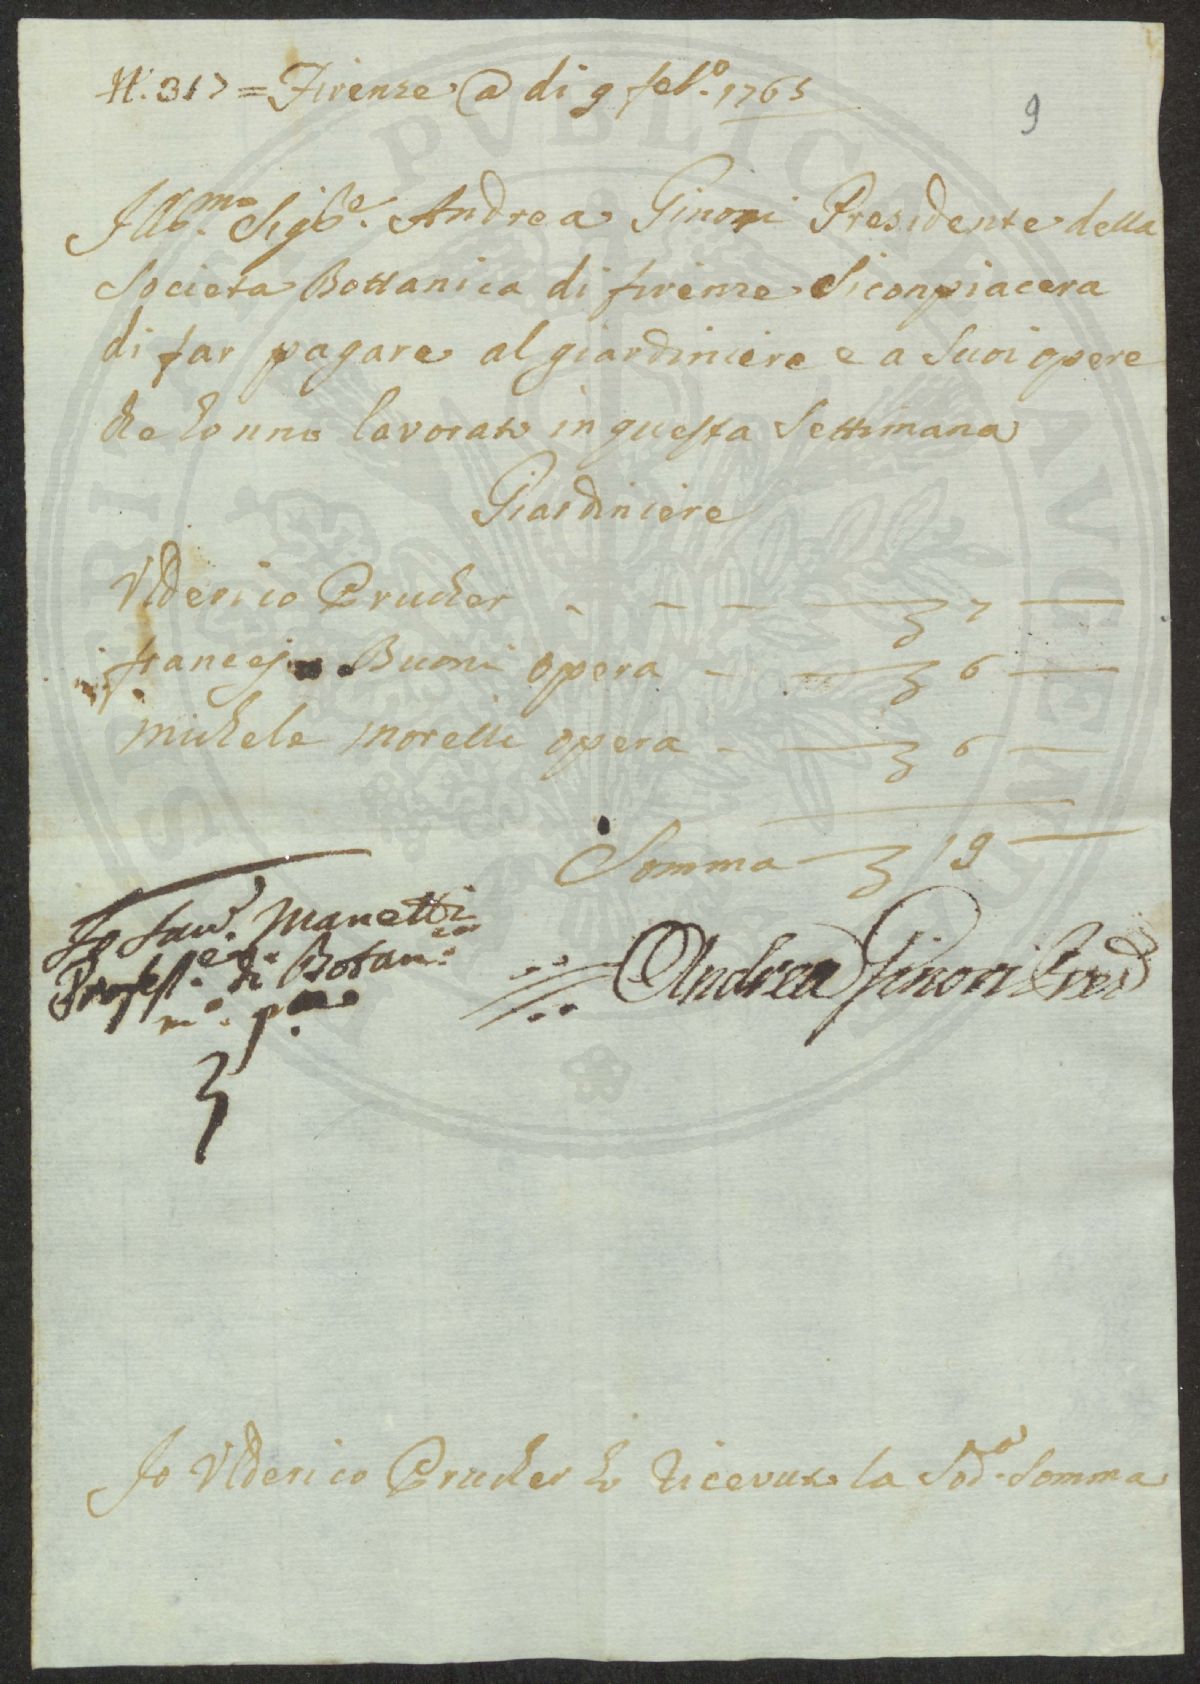 N. 317 = Firenze @ di 9 feb.º 1765
9
Ill.mo Sig.re Andrea Ginori Presidente della
Societa Bottanica di firenze Si conpiacera
di far pagare al giardiniere e a Suoi opere
che hanno lavorato in questa Settimana
Giardiniere
Vlderico Prucher - - - 7
francesco Buoni opera - 6
michele morelli opera - 6
Somma 19
Io Sav. Manetti
Profess.re di Botan.ca
m.o p.o
Andrea Ginori Presid
Io Vlderico Prucher ho Ricevuto la Sod.a Somma
PVBLICAE